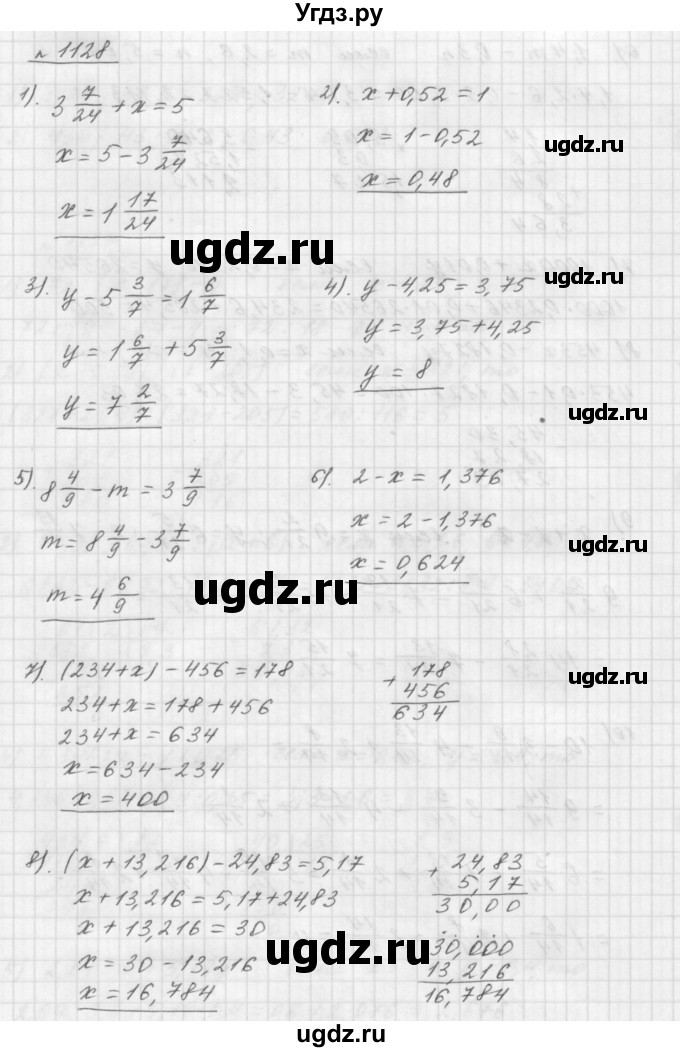 Угдз.ру
№ 1128
1). 3 7/24 + x = 5
x = 5 - 3 7/24
x = 1 17/24
2). x + 0,52 = 1
x = 1 - 0,52
x = 0,48
ugdz.ru
ugdz.ru
ugdz.ru
3). y - 5 3/7 = 1 6/7
y = 1 6/7 + 5 3/7
y = 7 2/7
4). y - 4,25 = 3,75
y = 3,75 + 4,25
y = 8
ugdz.ru
ugdz.ru
ugdz.ru
5). 8 4/9 - m = 3 7/9
m = 8 4/9 - 3 7/9
m = 4 6/9
6). 2 - x = 1,376
x = 2 - 1,376
x = 0,624
ugdz.ru
ugdz.ru
7). (234 + x) - 456 = 178
234 + x = 178 + 456
234 + x = 634
x = 634 - 234
x = 400
+ 178
456
634
ugdz.ru
8). (x + 13,216) - 24,83 = 5,17
x + 13,216 = 5,17 + 24,83
x + 13,216 = 30
x = 30 - 13,216
x = 16,784
+ 24,83
5,17
30,00
30,000
13,216
16,784
ugdz.ru
ugdz.ru
ugdz.ru
ugdz.ru